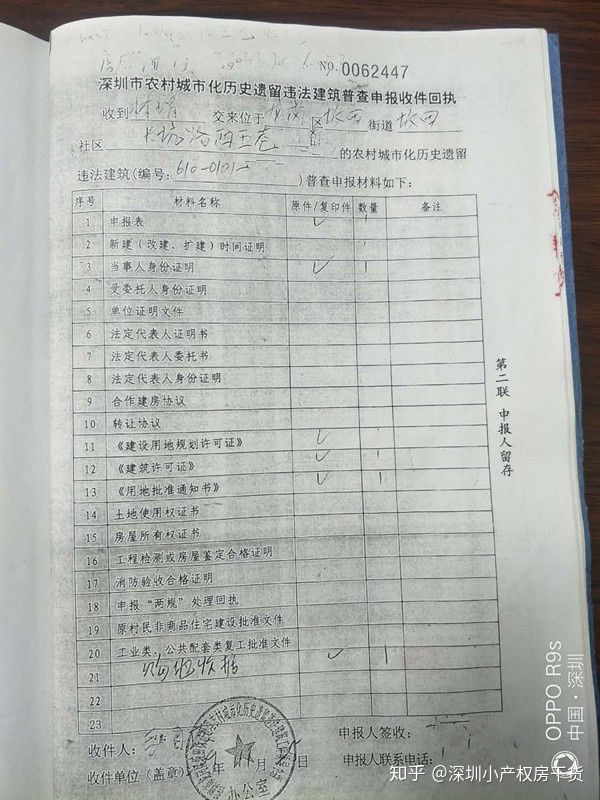 NO.0062447
深圳市农村城市化历史遗留违法建筑普查申报收件回执
收到 交来位于 区 坂田 街道 坂田
社区 的农村城市化历史遗留
违法建筑(编号: 610-0101- )普查申报材料如下:
序号 材料名称 原件/复印件 数量 备注
1 申报表 ✓ 1
2 新建(改建、扩建)时间证明
3 当事人身份证明 ✓ 1
4 受委托人身份证明
5 单位证明文件
6 法定代表人证明书
7 法定代表人委托书
8 法定代表人身份证明
9 合作建房协议
10 转让协议
11 《建设用地规划许可证》 ✓
12 《建筑许可证》 ✓ 1
13 《用地批准通知书》 ✓ 1
14 土地使用权证书
15 房屋所有权证书
16 工程检测或房屋鉴定合格证明
17 消防验收合格证明
18 申报“两规”处理回执
19 原村民非商品住宅建设批准文件
20 工业类、公共配套类复工批准文件
21 购地收据 ✓ 1
22
23
收件人: 申报人签收:
收件单位(盖章) 年 月 日 申报人联系电话:
办公室
第二联 申报人留存
OPPO R9s
中国·深圳
知乎 @深圳小产权房干货